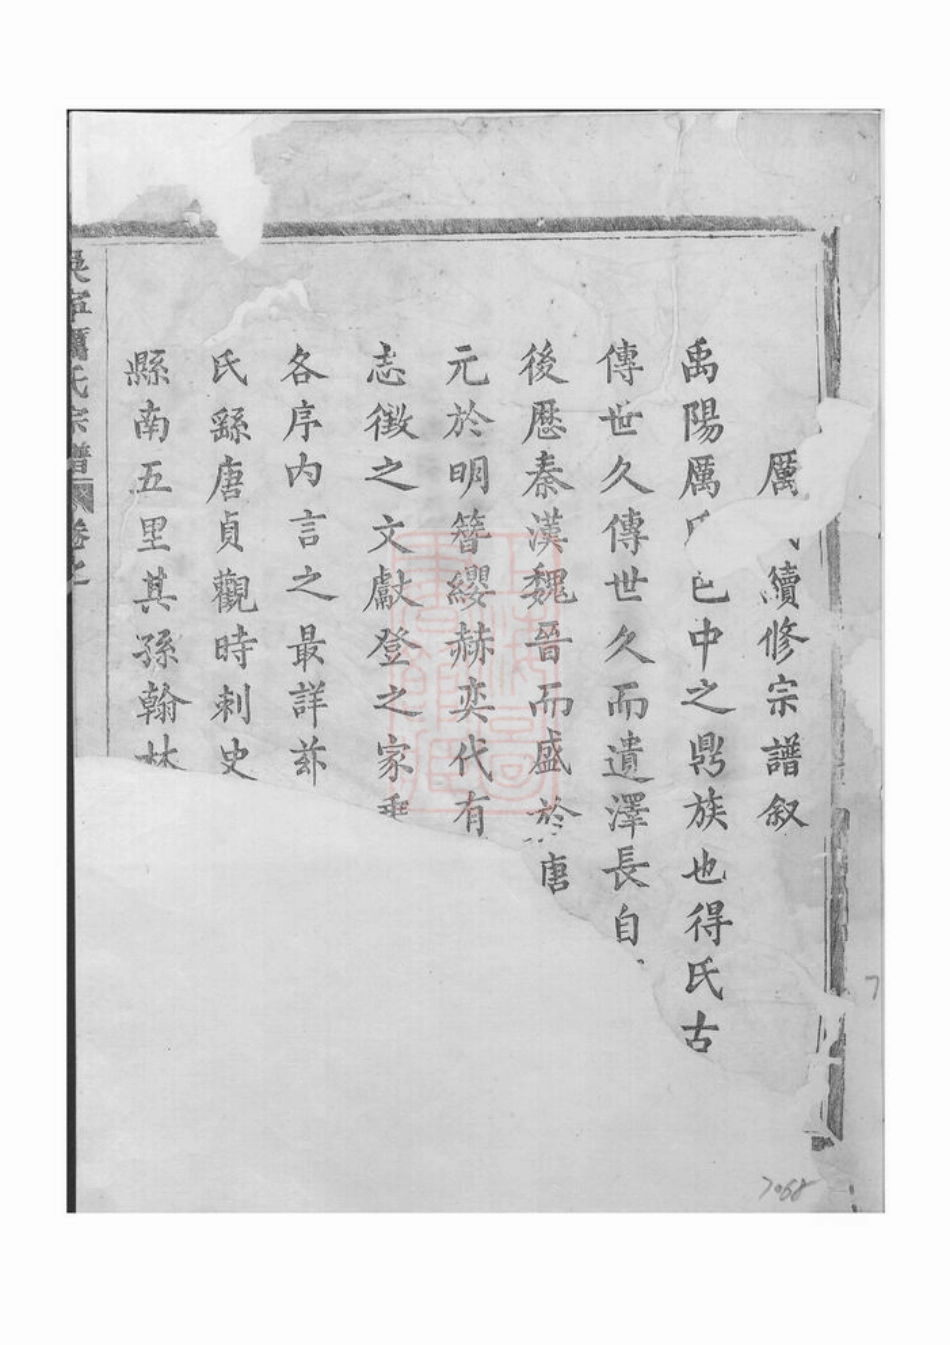 厲 續修宗譜叙
禹陽厲氏邑中之鼎族也得氏古
傳世久傳世久而遺澤長自
後歷秦漢魏晉而盛於唐
元於明簪纓赫奕代有
志徵之文獻登之家乘
各序內言之最詳茲
氏繇唐貞觀時刺史
縣南五里其孫翰林
吳寧厲氏宗譜 卷之
上海圖書館藏
7068